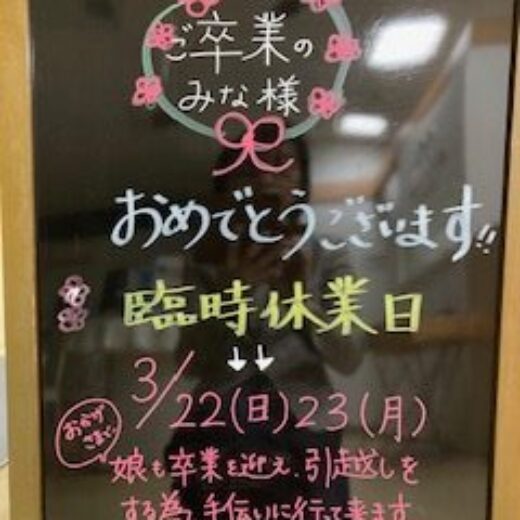 ご卒業の
みな様
おめでとうございます!!
臨時休業日
↓↓
3/22(日)23(月)
おかげ
さまで
娘も卒業を迎え、引越しを
する為、手伝いに行って来ます